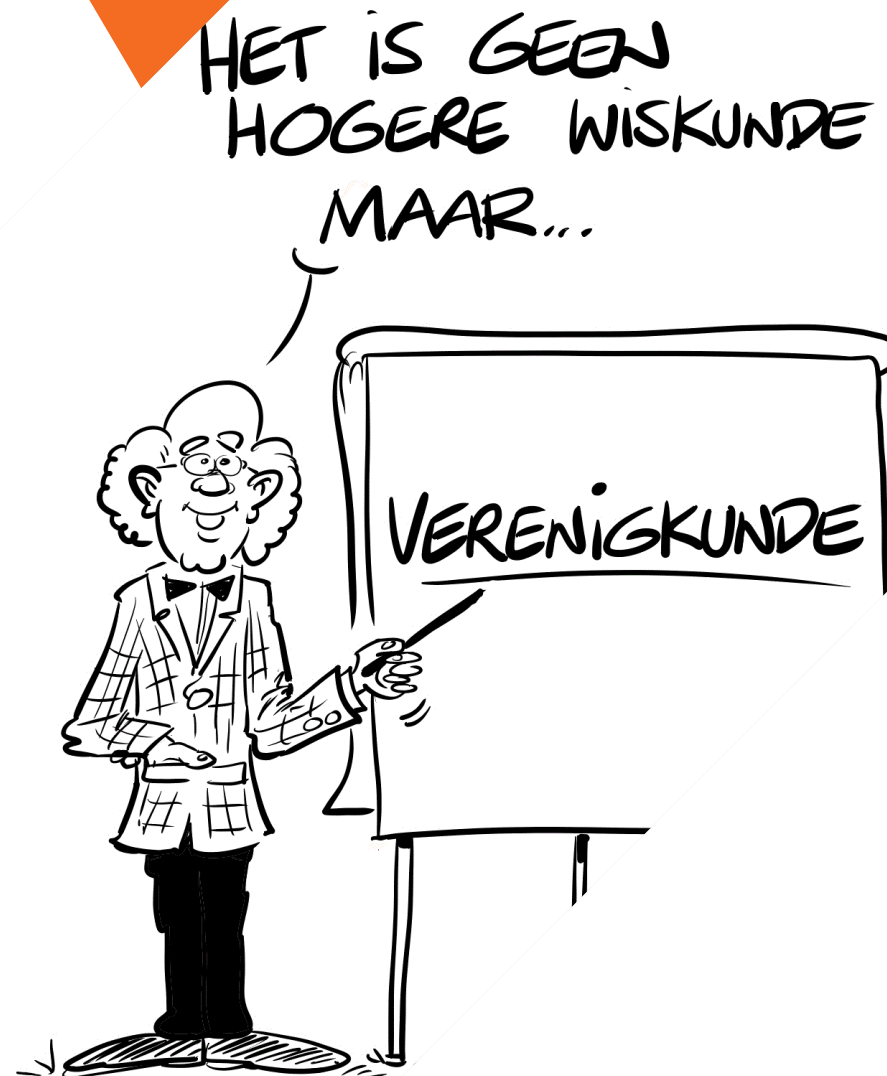 HET IS GEEN
HOGERE WISKUNDE
MAAR...
VERENIGKUNDE